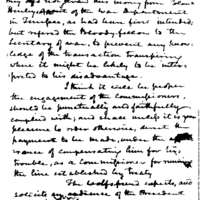 my
not draw this money from Isaac
Henley, Agent of the War Department
in Tennessee, as had been first intended,
but referred the Bloody fellow to the
Secretary of War, to prevent any know-
ledge of the transaction transpiring
where it might be likely to be inter-
preted to his disadvantage.
I think it will be proper
the engagement of the Commissioners,
should be punctually and faithfully
complied with; and shall unless it is your
pleasure to order otherwise, direct
payment to be made, under the
of compensating him for his
trouble, as a Commissioner for running
the line established by treaty
The expects, and
solicits of the President